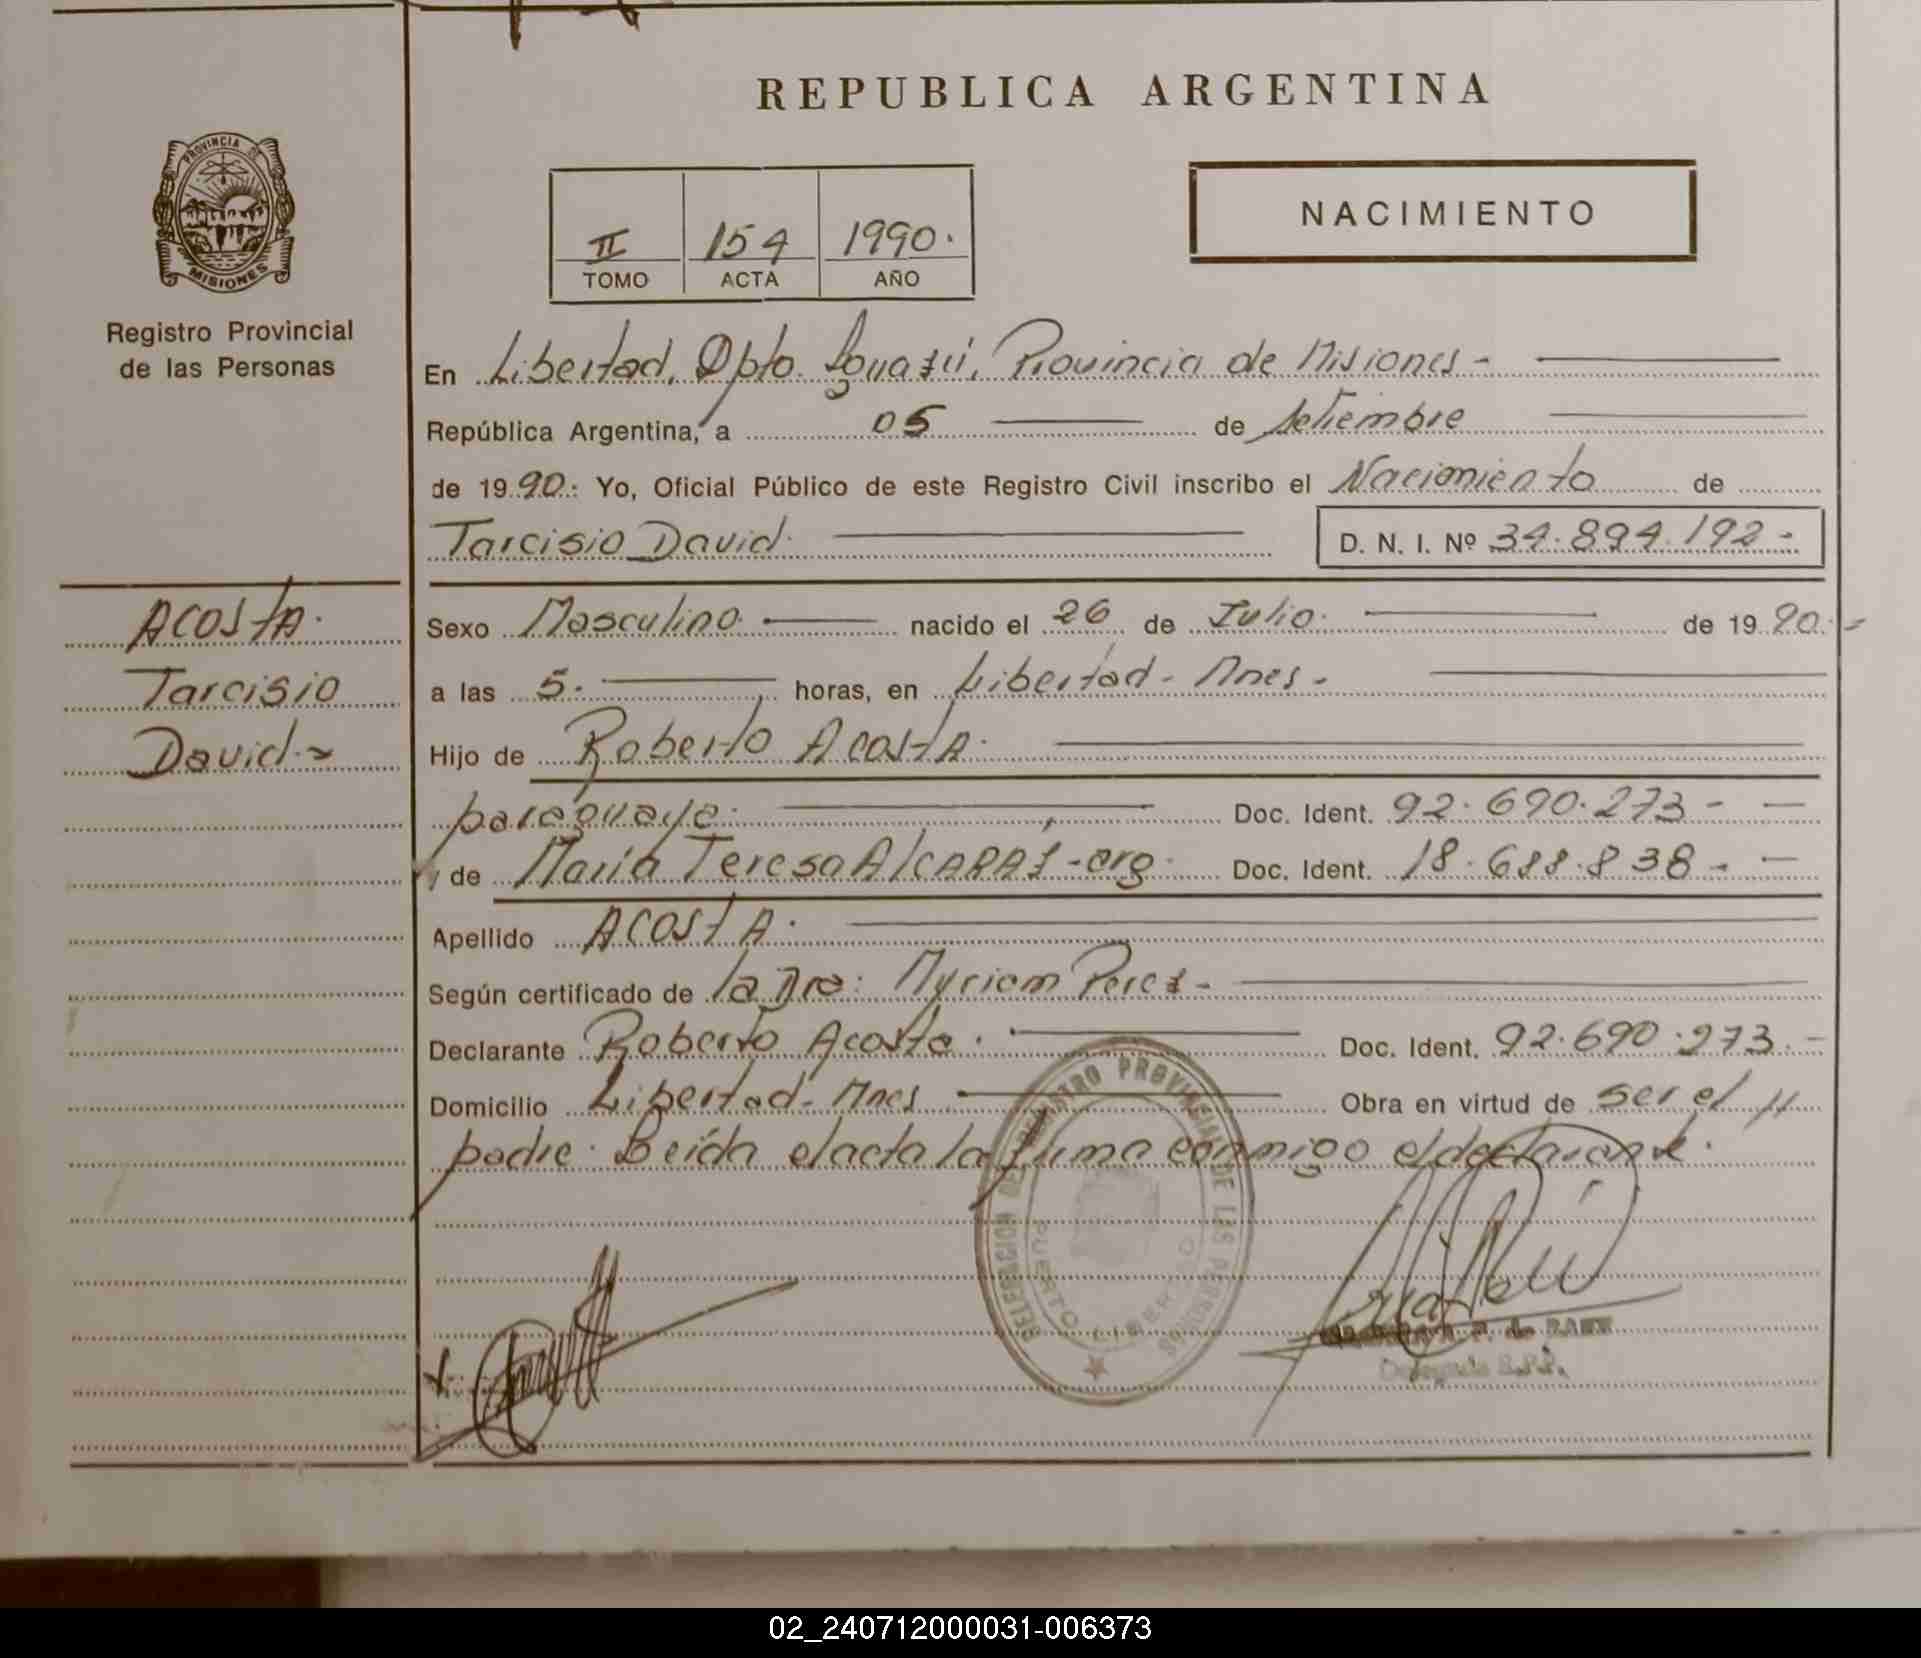 REPUBLICA ARGENTINA
PROVINCIA DE
MISIONES
Registro Provincial
de las Personas
II 154 1990.
TOMO ACTA AÑO
NACIMIENTO
En Libertad, Dpto. Iguazú, Provincia de Misiones -
República Argentina, a 05 de Setiembre
de 1990.- Yo, Oficial Público de este Registro Civil inscribo el Nacimiento de
Tarcisio David. D. N. I. Nº 34.894.192 -
ACOSTA.
Tarcisio
David.-
Sexo Masculino. nacido el 26 de Julio. de 1990.-
a las 5. horas, en Libertad - Mnes.
Hijo de Roberto ACOSTA.
paraguayo. Doc. Ident. 92.690.273 -
y de María Teresa AlCARAZ - arg. Doc. Ident. 18.688.838 -
Apellido ACOSTA.
Según certificado de la Dra: Myriam Perez -
Declarante Roberto Acosta. Doc. Ident. 92.690.273. -
Domicilio Libertad - Mnes Obra en virtud de ser el //
padre. Leída el acta la firma conmigo el declarante.
DELEGACION DEL REGISTRO PROVINCIAL DE LAS PERSONAS
PUERTO LIBERTAD
P. de
Delegada R.P.P.
02_240712000031-006373